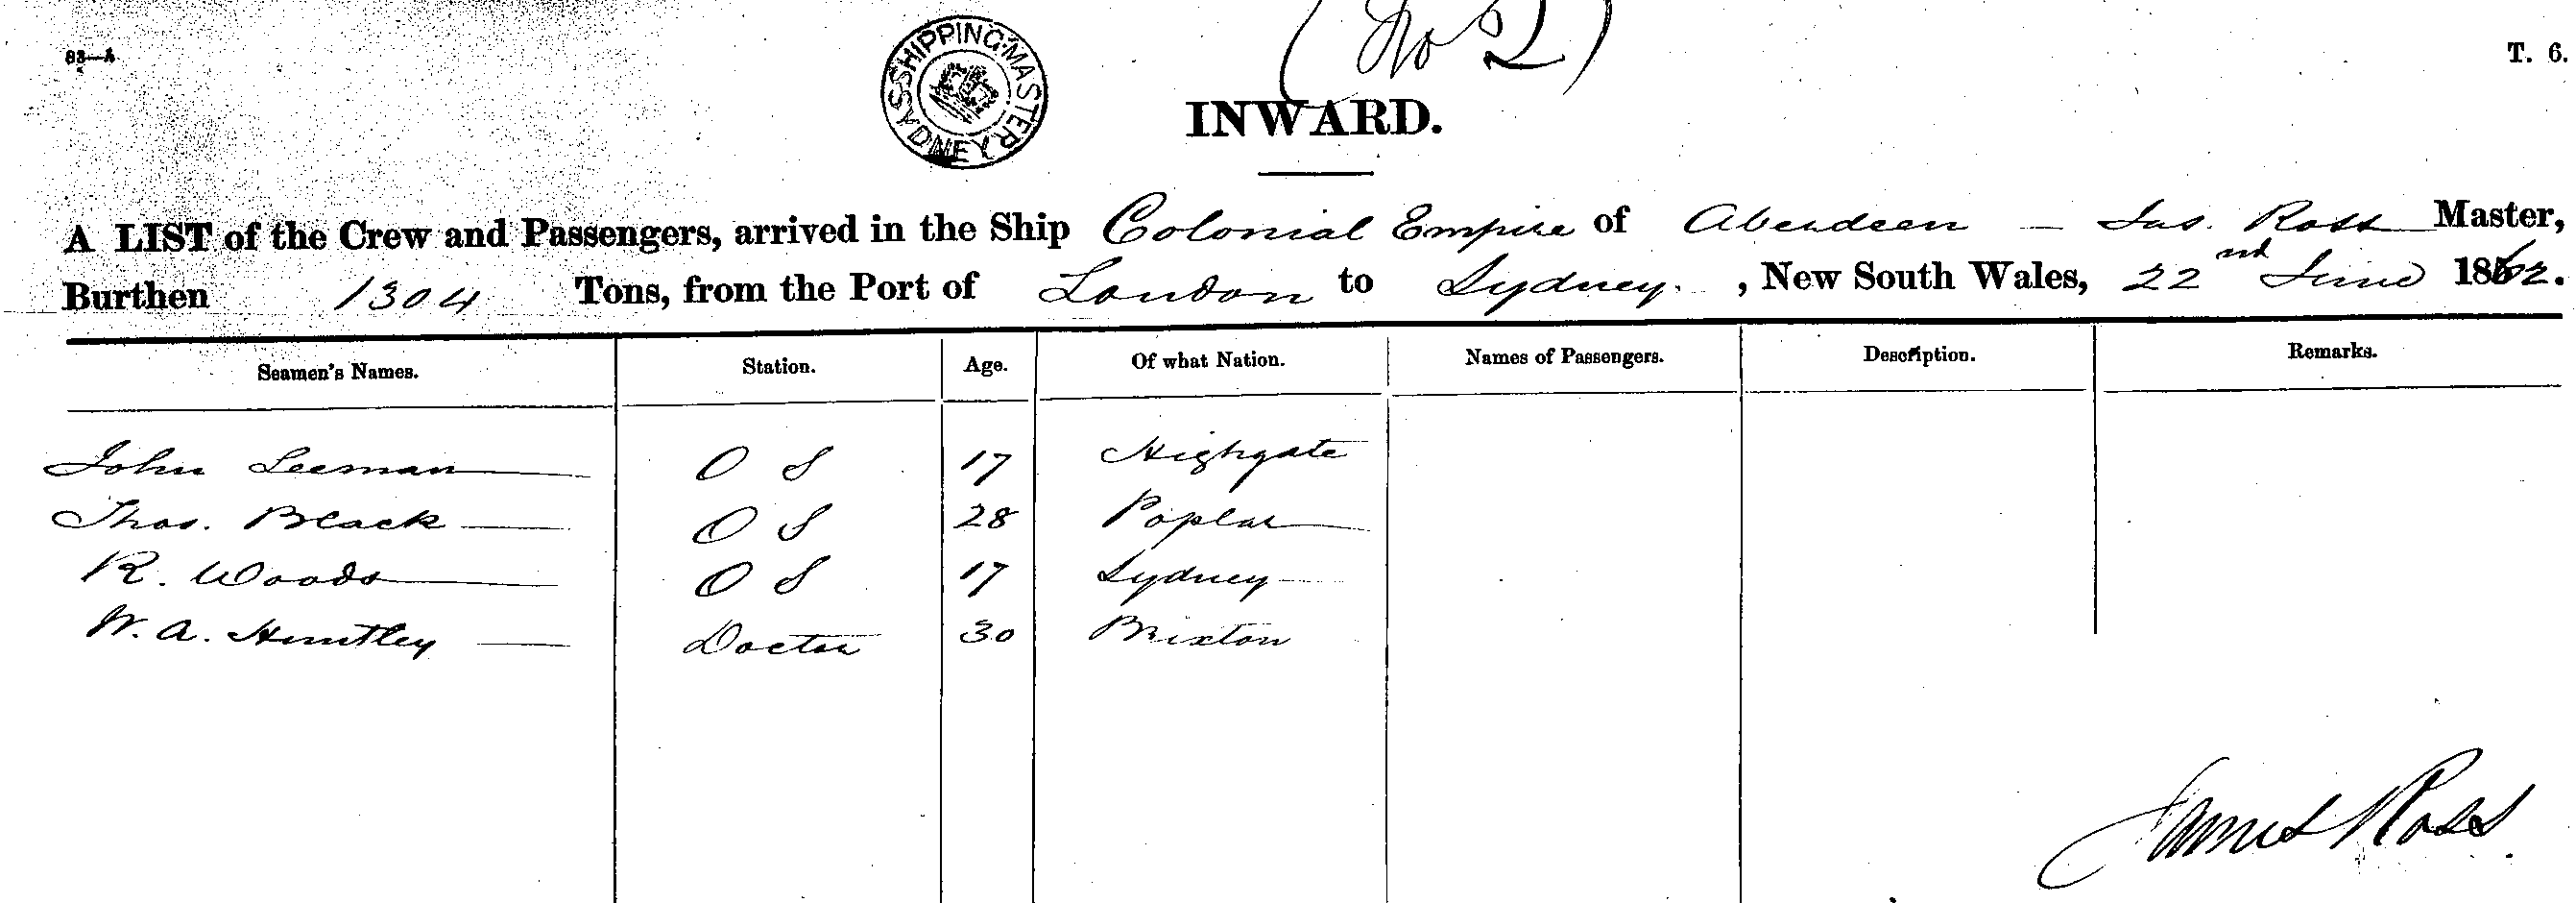 (No 2)
83—A
SHIPPING MASTER SYDNEY
T. 6.
INWARD.
A LIST of the Crew and Passengers, arrived in the Ship Colonial Empire of Aberdeen — Jas. Ross Master,
Burthen 1304 Tons, from the Port of London to Sydney. , New South Wales, 22nd June 1862.
Seamen's Names. Station. Age. Of what Nation. Names of Passengers. Description. Remarks.
John Leeman O S 17 Highgate
Thos. Black O S 28 Poplar
R. Woods O S 17 Sydney
W. A. Huntley Doctor 30 Brixton
James Ross